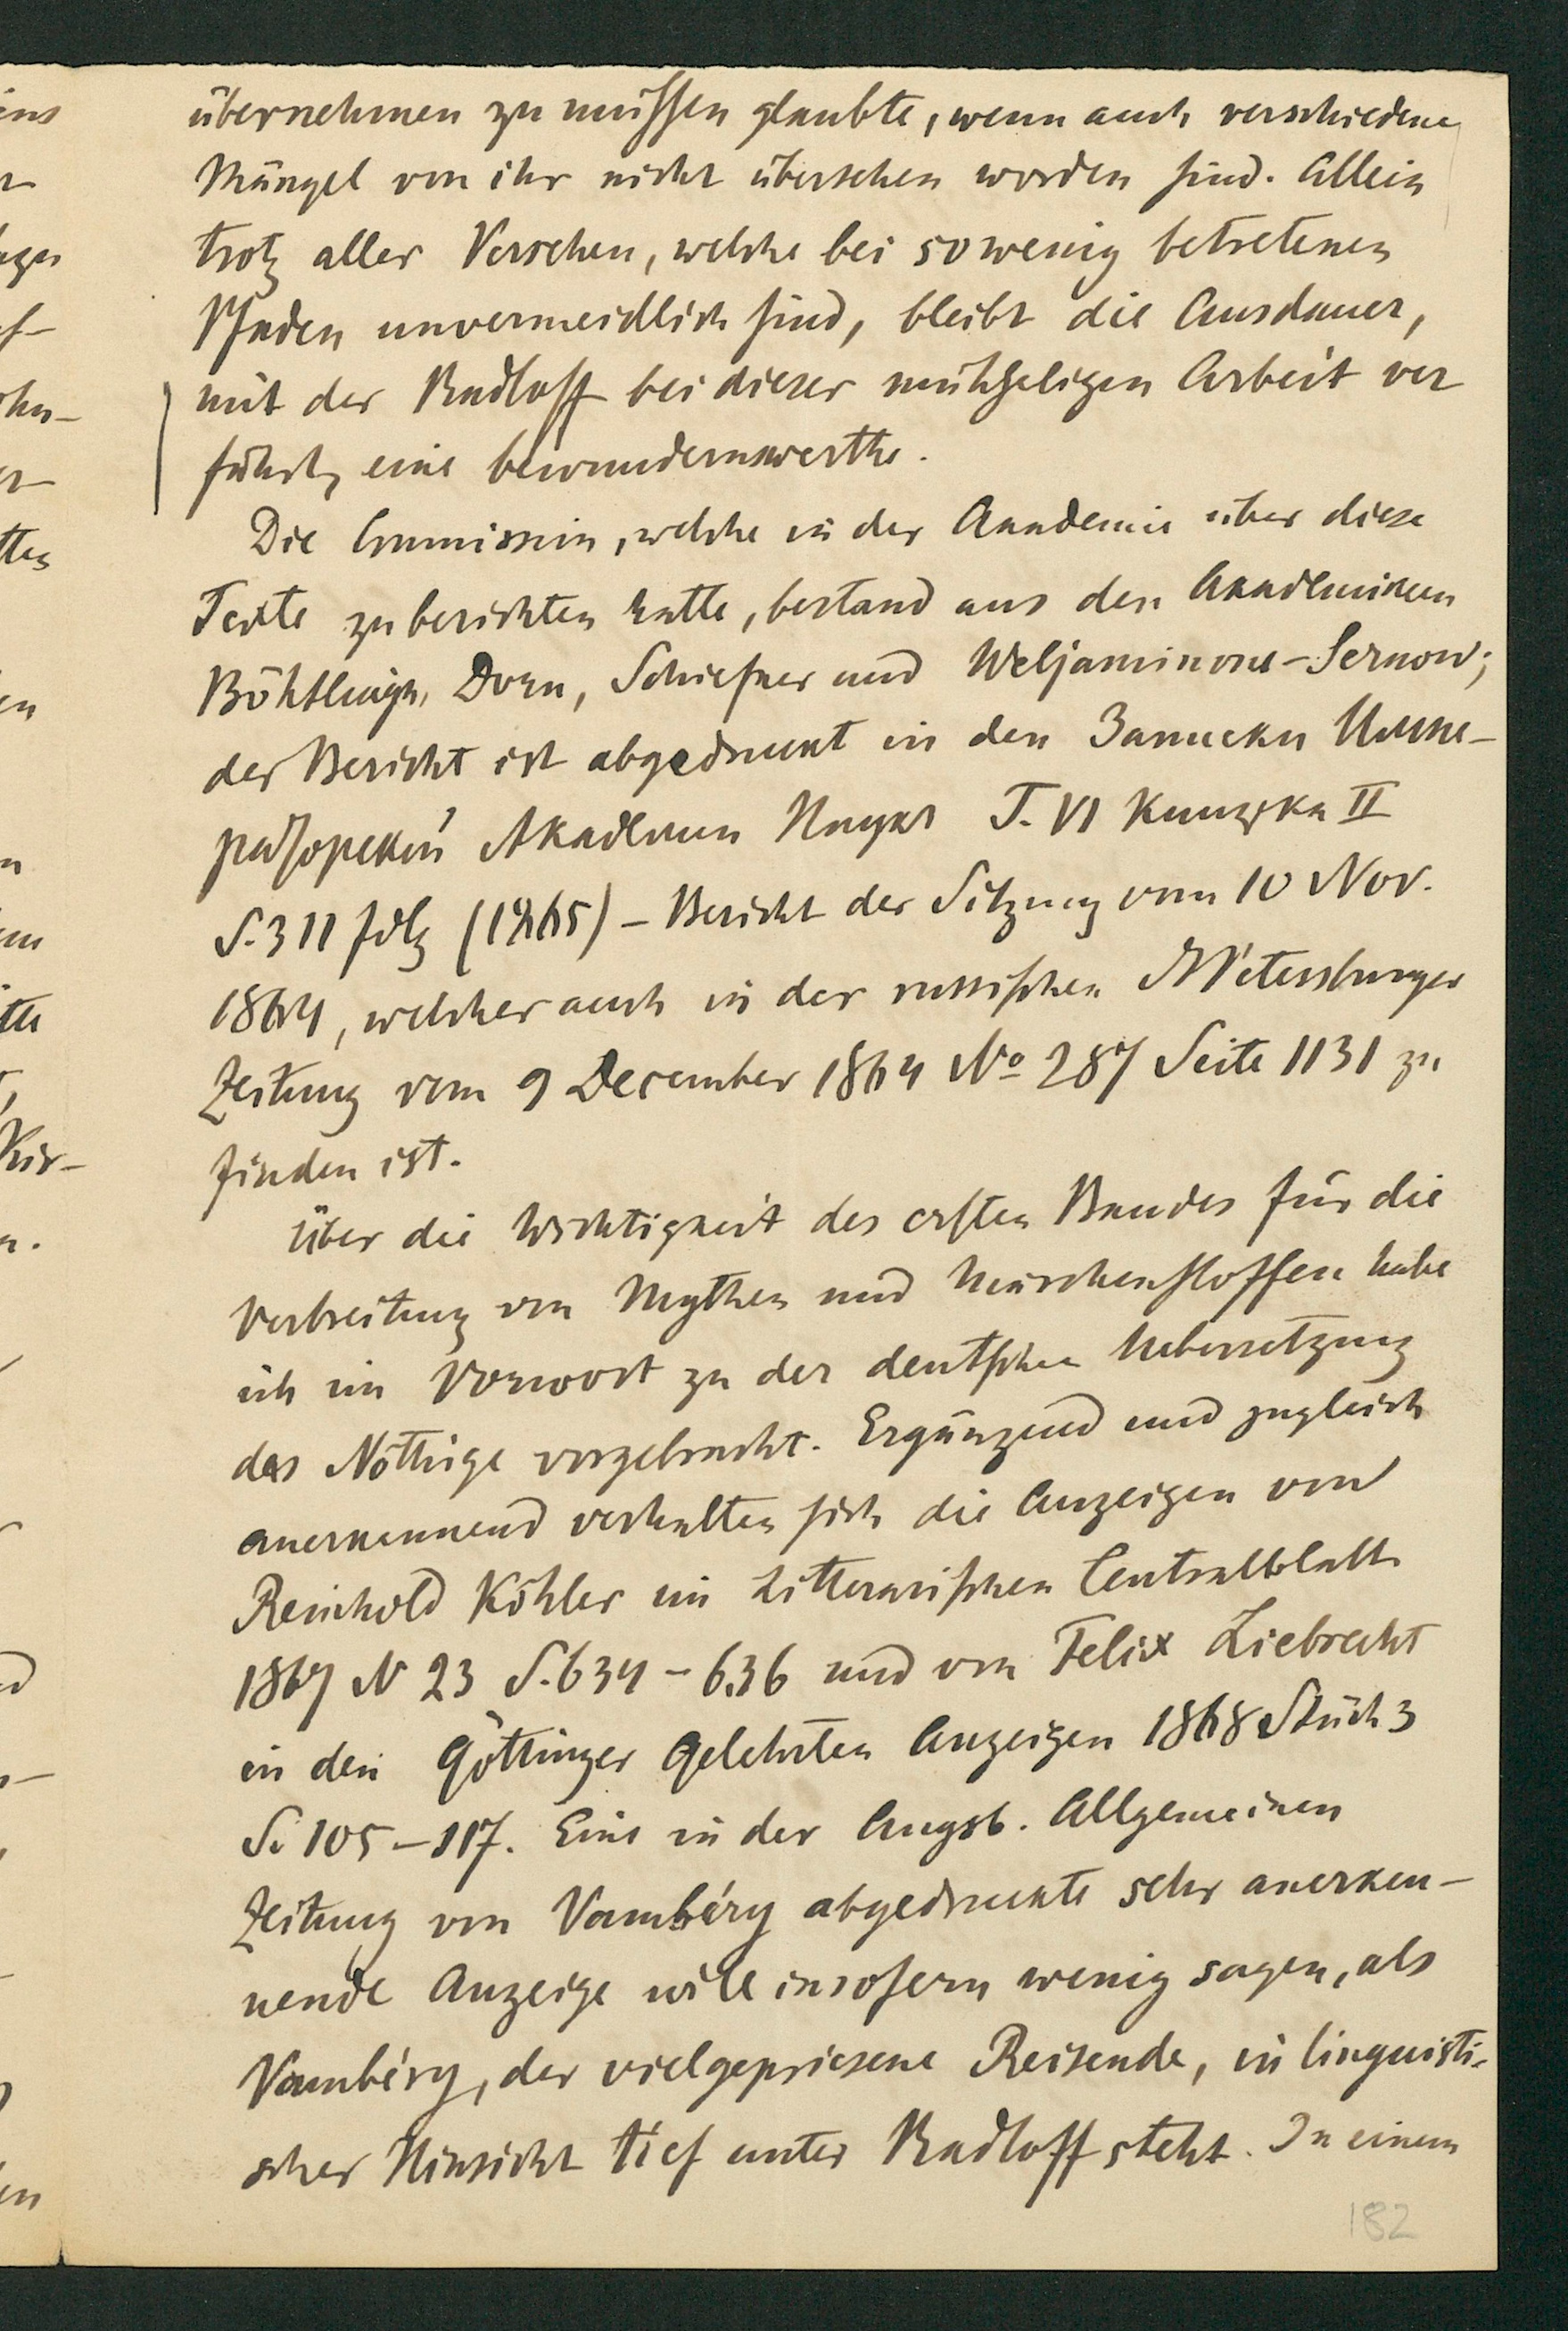 übernehmen zu müssen glaubte, wenn auch verschiedene
Mängel von ihr nicht übersehen worden sind. Allein
trotz aller Versehen, welche bei so wenig betretenen
Pfaden unvermeidlich sind, bleibt die Ausdauer,
mit der Radloff bei dieser mühseligen Arbeit ver
fährt, eine bewundernswerthe.
Die Commission, welche in der Akademie über diese
Texte zu berichten hatte, bestand aus den Akademikern
Böhtlingk, Dorn, Schiefner und Weljaminow-Sernow;
der Bericht ist abgedruckt in den Записки Импе-
раторской Академии Наукъ T. VI Книжка II
S. 311 folg (1865) – Bericht der Sitzung vom 10 Nov.
1864, welcher auch in der russischen St Petersburger
Zeitung vom 9 December 1864 No 287 Seite 1131 zu
finden ist.
Über die Wichtigkeit des ersten Bandes für die
Verbreitung von Mythen und Märchenstoffen habe
ich im Vorwort zu der deutschen Uebersetzung
das Nöthige vorgebracht. Ergänzend und zugleich
anerkennend verhalten sich die Anzeigen von
Reinhold Köhler im Litterarischen Centralblatt
1867 N 23 S. 634–636 und von Felix Liebrecht
in den Göttinger Gelehrten Anzeigen 1868 Stück 3
S. 105–117. Eine in der Augsb. Allgemeinen
Zeitung von Vambéry abgedruckte sehr anerken-
nende Anzeige will insofern wenig sagen, als
Vambéry, der vielgepriesene Reisende, in linguisti-
scher Hinsicht tief unter Radloff steht. In einem
182